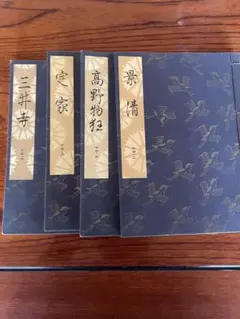 景清
高野物狂
定家
三井寺